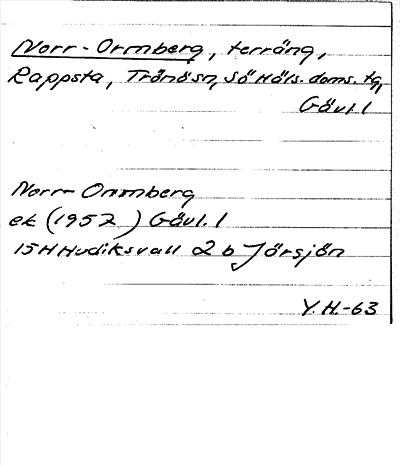 Norr-Ormberg, terräng,
Rappsta, Trönösn, Sö Häls. doms. tg,
Gävl. l
Norr-Ormberg
ek (1952) Gävl. l
15H Hudiksvall 2 b Jörsjön
Y.H.-63